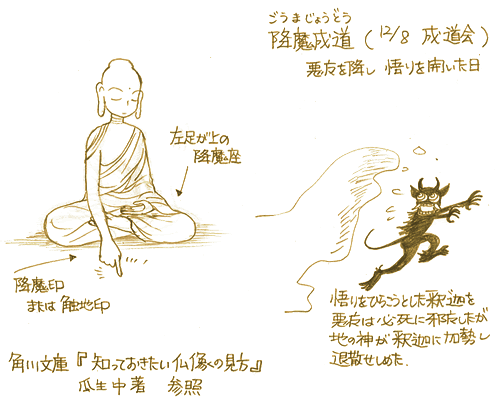 ごうまじょうどう
降魔成道(12/8 成道会)
悪友を降し 悟りを開いた日
左足が上の
降魔座
降魔印
または 触地印
悟りをひらこうとした釈迦を
悪友は必死に邪魔したが
地の神が釈迦に加勢し
退散せしめた.
角川文庫『知っておきたい仏像の見方』
瓜生中著 参照